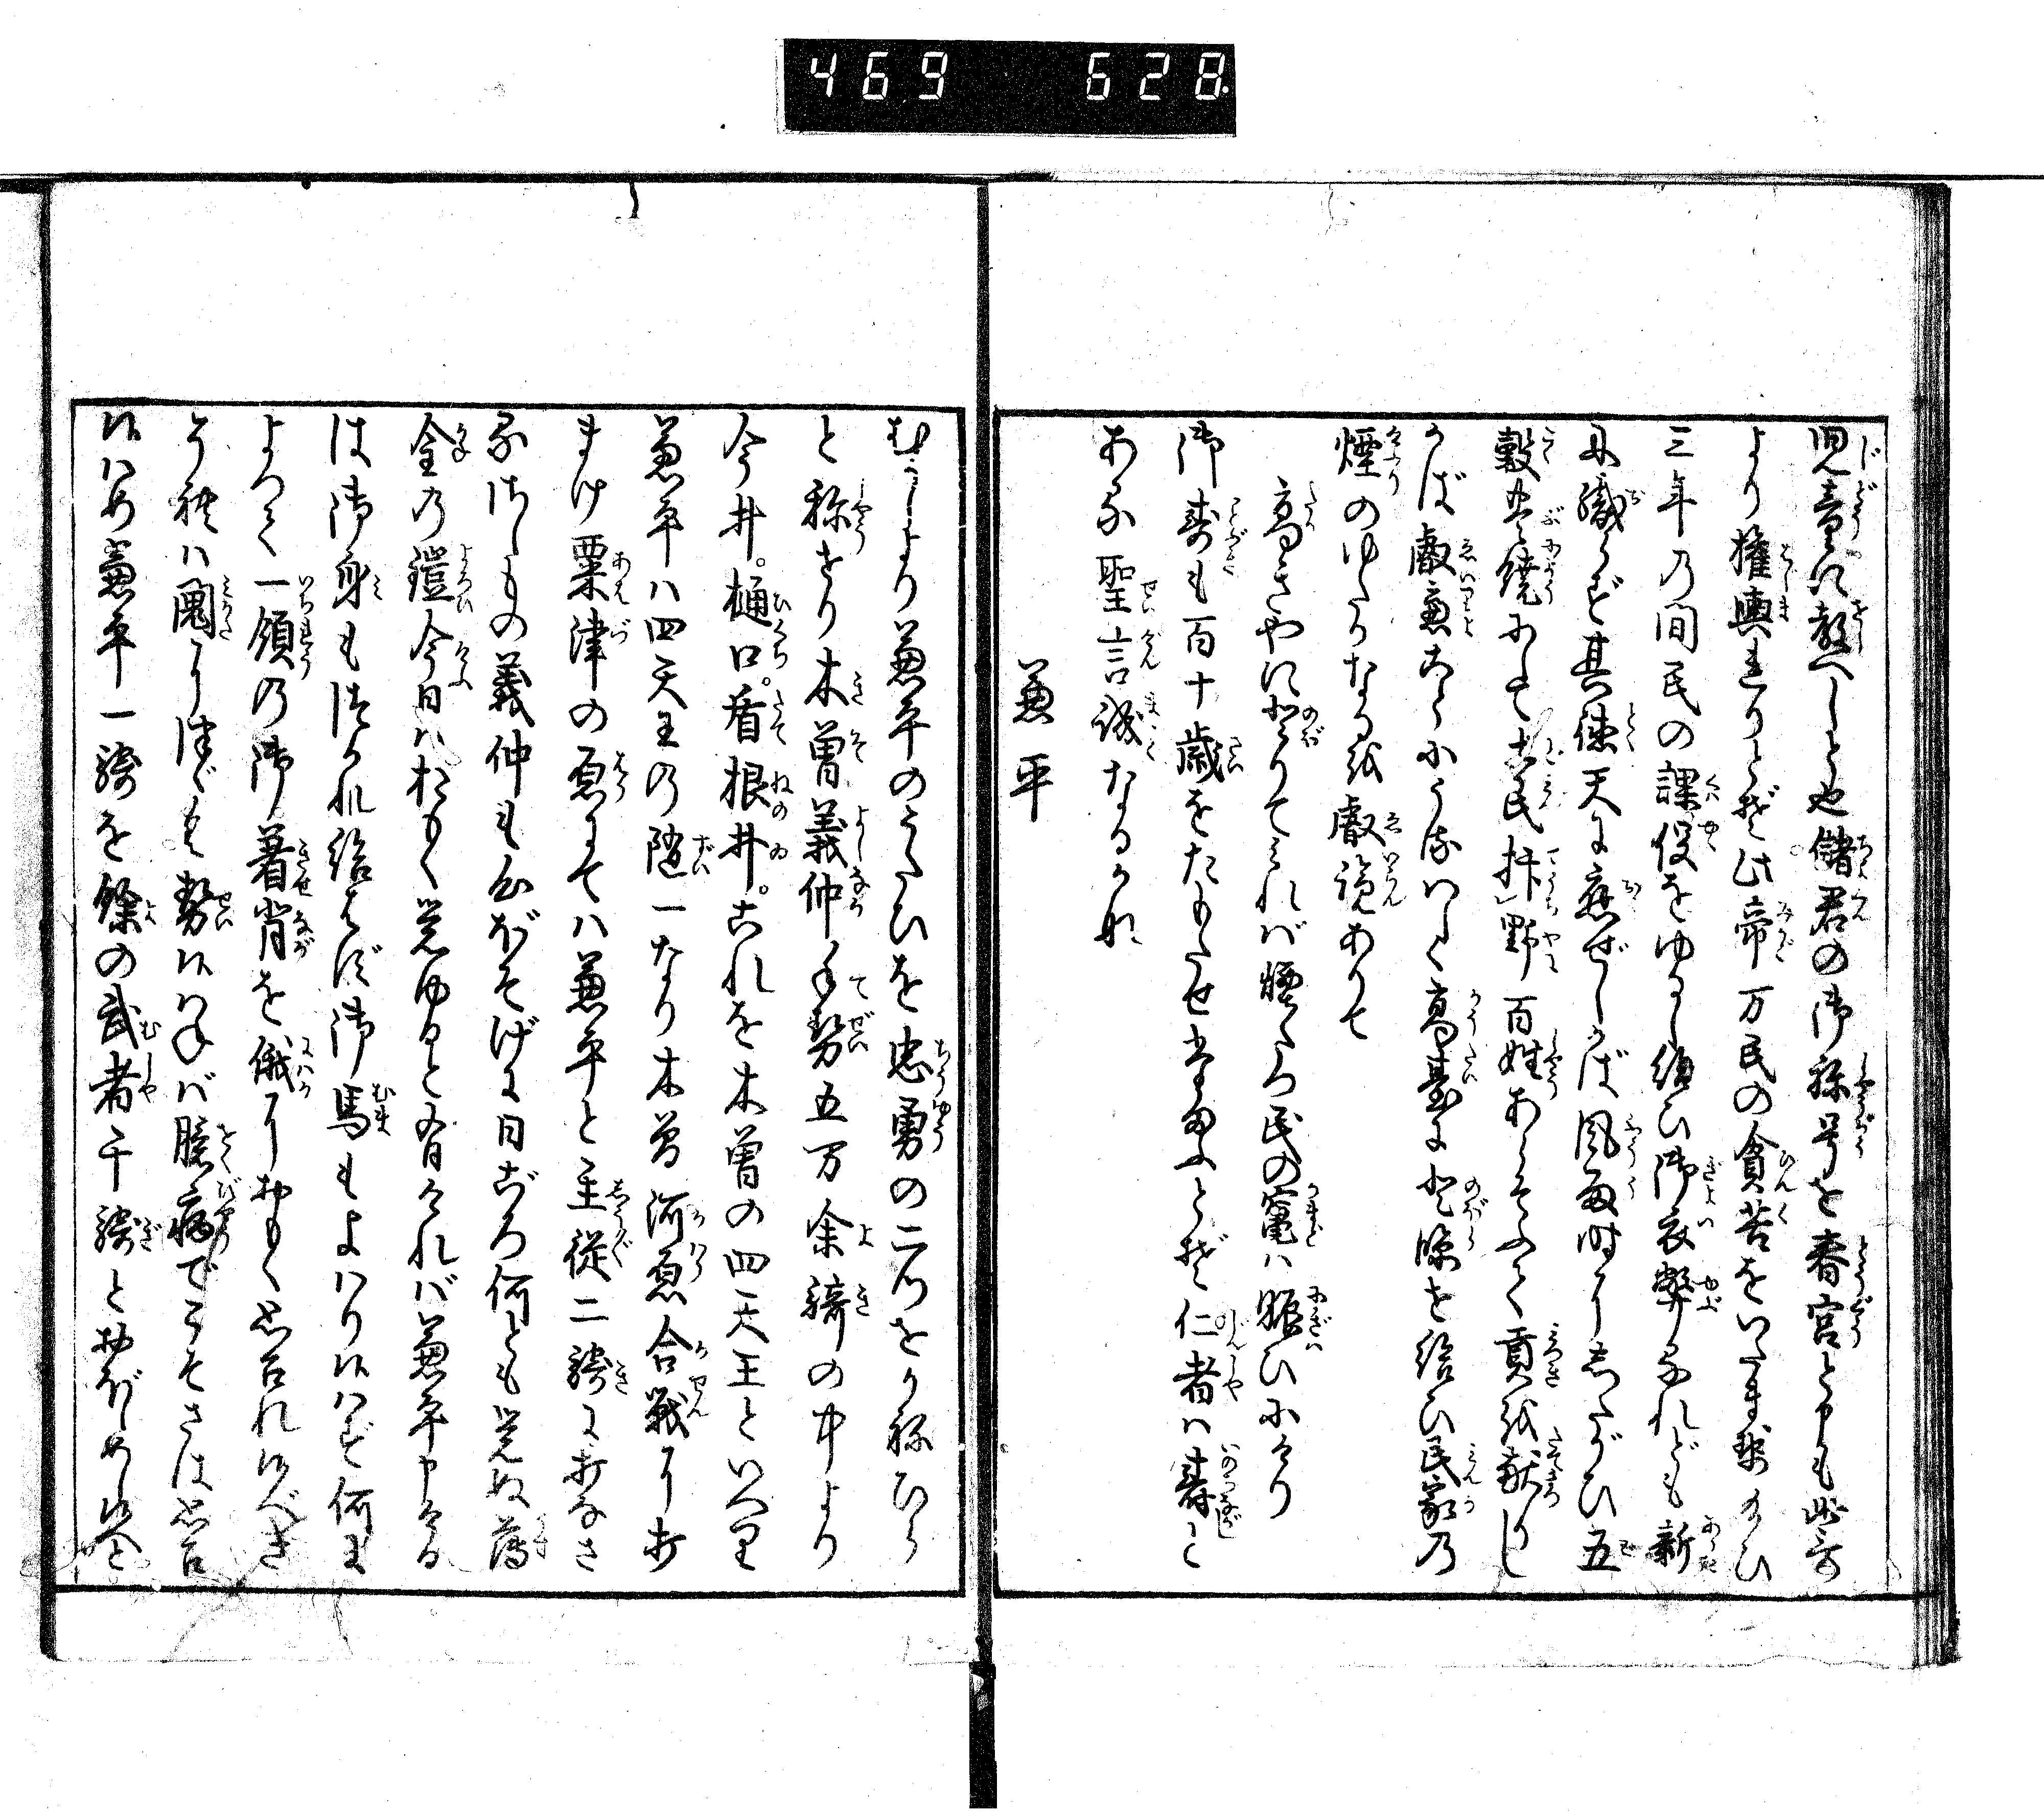 469 628
児童に教へしと也儲君の御称号を春宮と申も此寄
より権輿はじまれりとぞ此帝万民の貧苦をいたませ給ひ
三年の間民の課役をゆるし給ひ御衣弊るれども新
に織らず其徳天に応ぜしかば風雨時にしたがひ五
穀豊饒にして土民野百姓あらそふて貢を献りし
かば叡慮こゝろよく高台に登臨を給ひ民家の
煙のゆたかなるを叡覧ありて
高きやに登りてみれば煙たつ民の竈は賑ひにけり
御寿も百十歳をたもたせ給ふとぞ仁者は寿し
ある聖言誠なるかな
兼平
むかしより兼平のうたひを忠勇の二つをかねひら
と称せり木曽義仲手勢五万余騎の中より
今井。樋口。盾根井。これを木曽の四天王といへり
兼平は四天王の随一なり木曽河原合戦に打
まけ粟津の原にては兼平と主従二騎に打なさ
るさしもの義仲も心ぼそげに日ごろ何とも覚ぬ薄
金の鎧今日はおもく覚ゆると有ければ兼平申ける
は御身もつかれ給はず御馬もよはり候はず何に
よつて一領の御着背を俄におもく思召れ候べき
それは御方に続く勢候はねば臆病でこそさは思召
候はめ兼平一騎を余の武者千騎とおぼしめし候へ